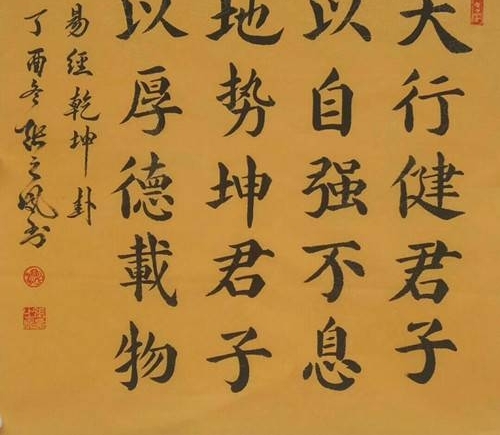 天行健君子
以自强不息
地势坤君子
以厚德載物
易经乾坤卦
丁酉冬张之风书